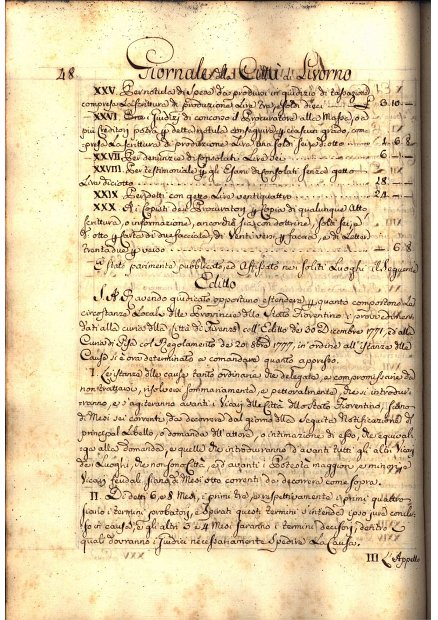 48 Giornale della Città di Livorno
XXV. Per notula di spese da prodursi in giudizio di tassazione
compresa la scrittura di produzione Lire tre, e soldi dieci 3 10
XXVI. Tra i Giudizj di concorso il Procuratore alla Massa, o
più Creditori potrà p. dette notule conseguire p. ciascun grado, com-
presa la scrittura di produzione Lire soldi sei e otto 6 8
XXVII. Per denunzia di Consolati Lire sei 6
XXVIII. Per testimoniale p. gli Esami di Consolati senza getto
Lire diciotto 18
XXIX. Per detti con getto Lire ventiquattro 24
XXX. Ai Copisti dei Procuratori p. Copia di qualunque Att.
scrittura, o informazione, ancorchè sia con dottrine, soldi sei e
d. otto p. carta di due facciate, di Venti versi p. facciata, e di Lettere
trenta due p. verso 6 8
È stato parimente pubblicato, ed Affisso nei soliti Luoghi il seguente
Editto
S. A. R. avendo giudicato opportuno estendere p. quanto comportano le
circostanze Locali alle Provincie dello Stato Fiorentino i provvedimenti
dati alla curia della Città di Firenze coll' Editto de' 30 Dicembre 1771, ed alla
Curia di Pisa col Regolamento de' 1777, in ordine all' istanze delle
Cause si è ora determinato a comandare quanto appresso.
I. Le istanze delle cause tanto ordinarie che delegate, e compromissarie da
non trattarsi, o risolversi sommariamente, e pettoralmente, che si introdur-
ranno, e s'agiteranno avanti i Vicarj delle Città dello Stato Fiorentino, siano
di Mesi sei correnti, da decorrere dal giorno della seguita Notificazione del
principal Libello, o domanda dell' attore, o intimazione di esso, che equival-
ga alla domanda, e quelle che introdurranno d'avanti tutti gli altri Vicarj
dei Luoghi, che non sono Città, ed avanti i Potestà maggiori, e minori, e
Vicarj feudali, siano di Mesi otto correnti da decorrere come sopra.
II. Di detti 6, e 8 Mesi, i primi tre, e respettivamente i primi quattro
siano i termini probatorj, e spirati questi termini s'intenda ipso jure conclu-
so in causa, e gli altri 3 e 4 Mesi saranno i termini decisorj, dentro i
quali dovranno i Giudici necessariamente spedire la Causa.
III L'Appello